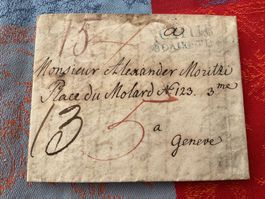 15
a
Monsieur Alexander Moritzi
Place du Molard No 123. 3me
13 5
a
Geneve